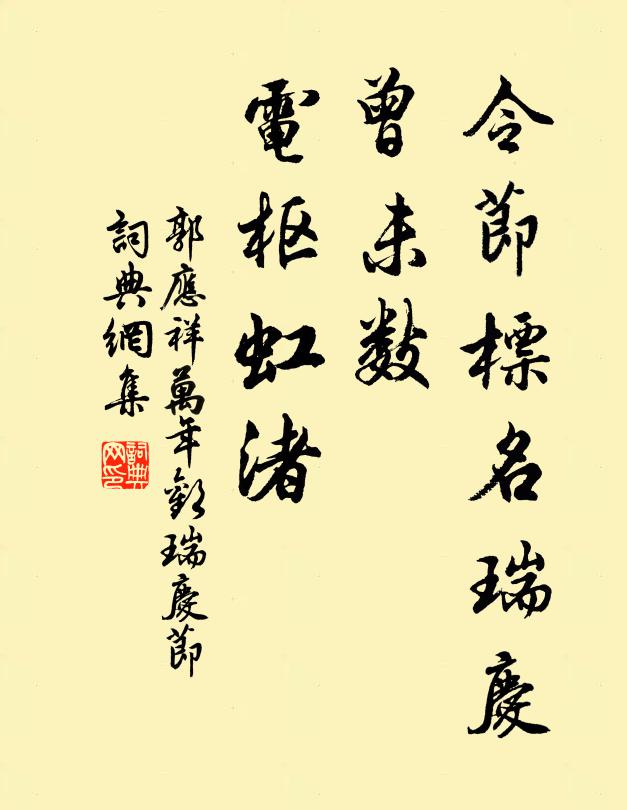 令節標名瑞慶
曾未數
電枢虹渚
郭應祥萬年歡瑞慶節
詞典網集
詞典
网印